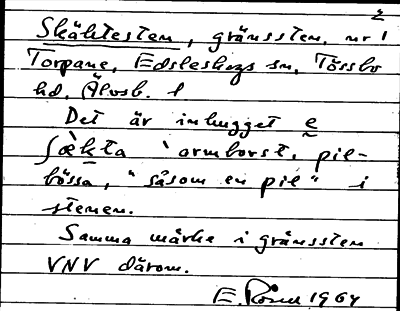 2
Skäktesten, gränssten, nr 1
Torpane, Edsleskogs sn, Tössbo
hd, Älvsb. l
Det är inhugget e
skäkta 'armborst, pil-
bössa, "såsom en pil" i
stenen.
Samma märke i gränssten
VNV därom.
E. Rosén 1964